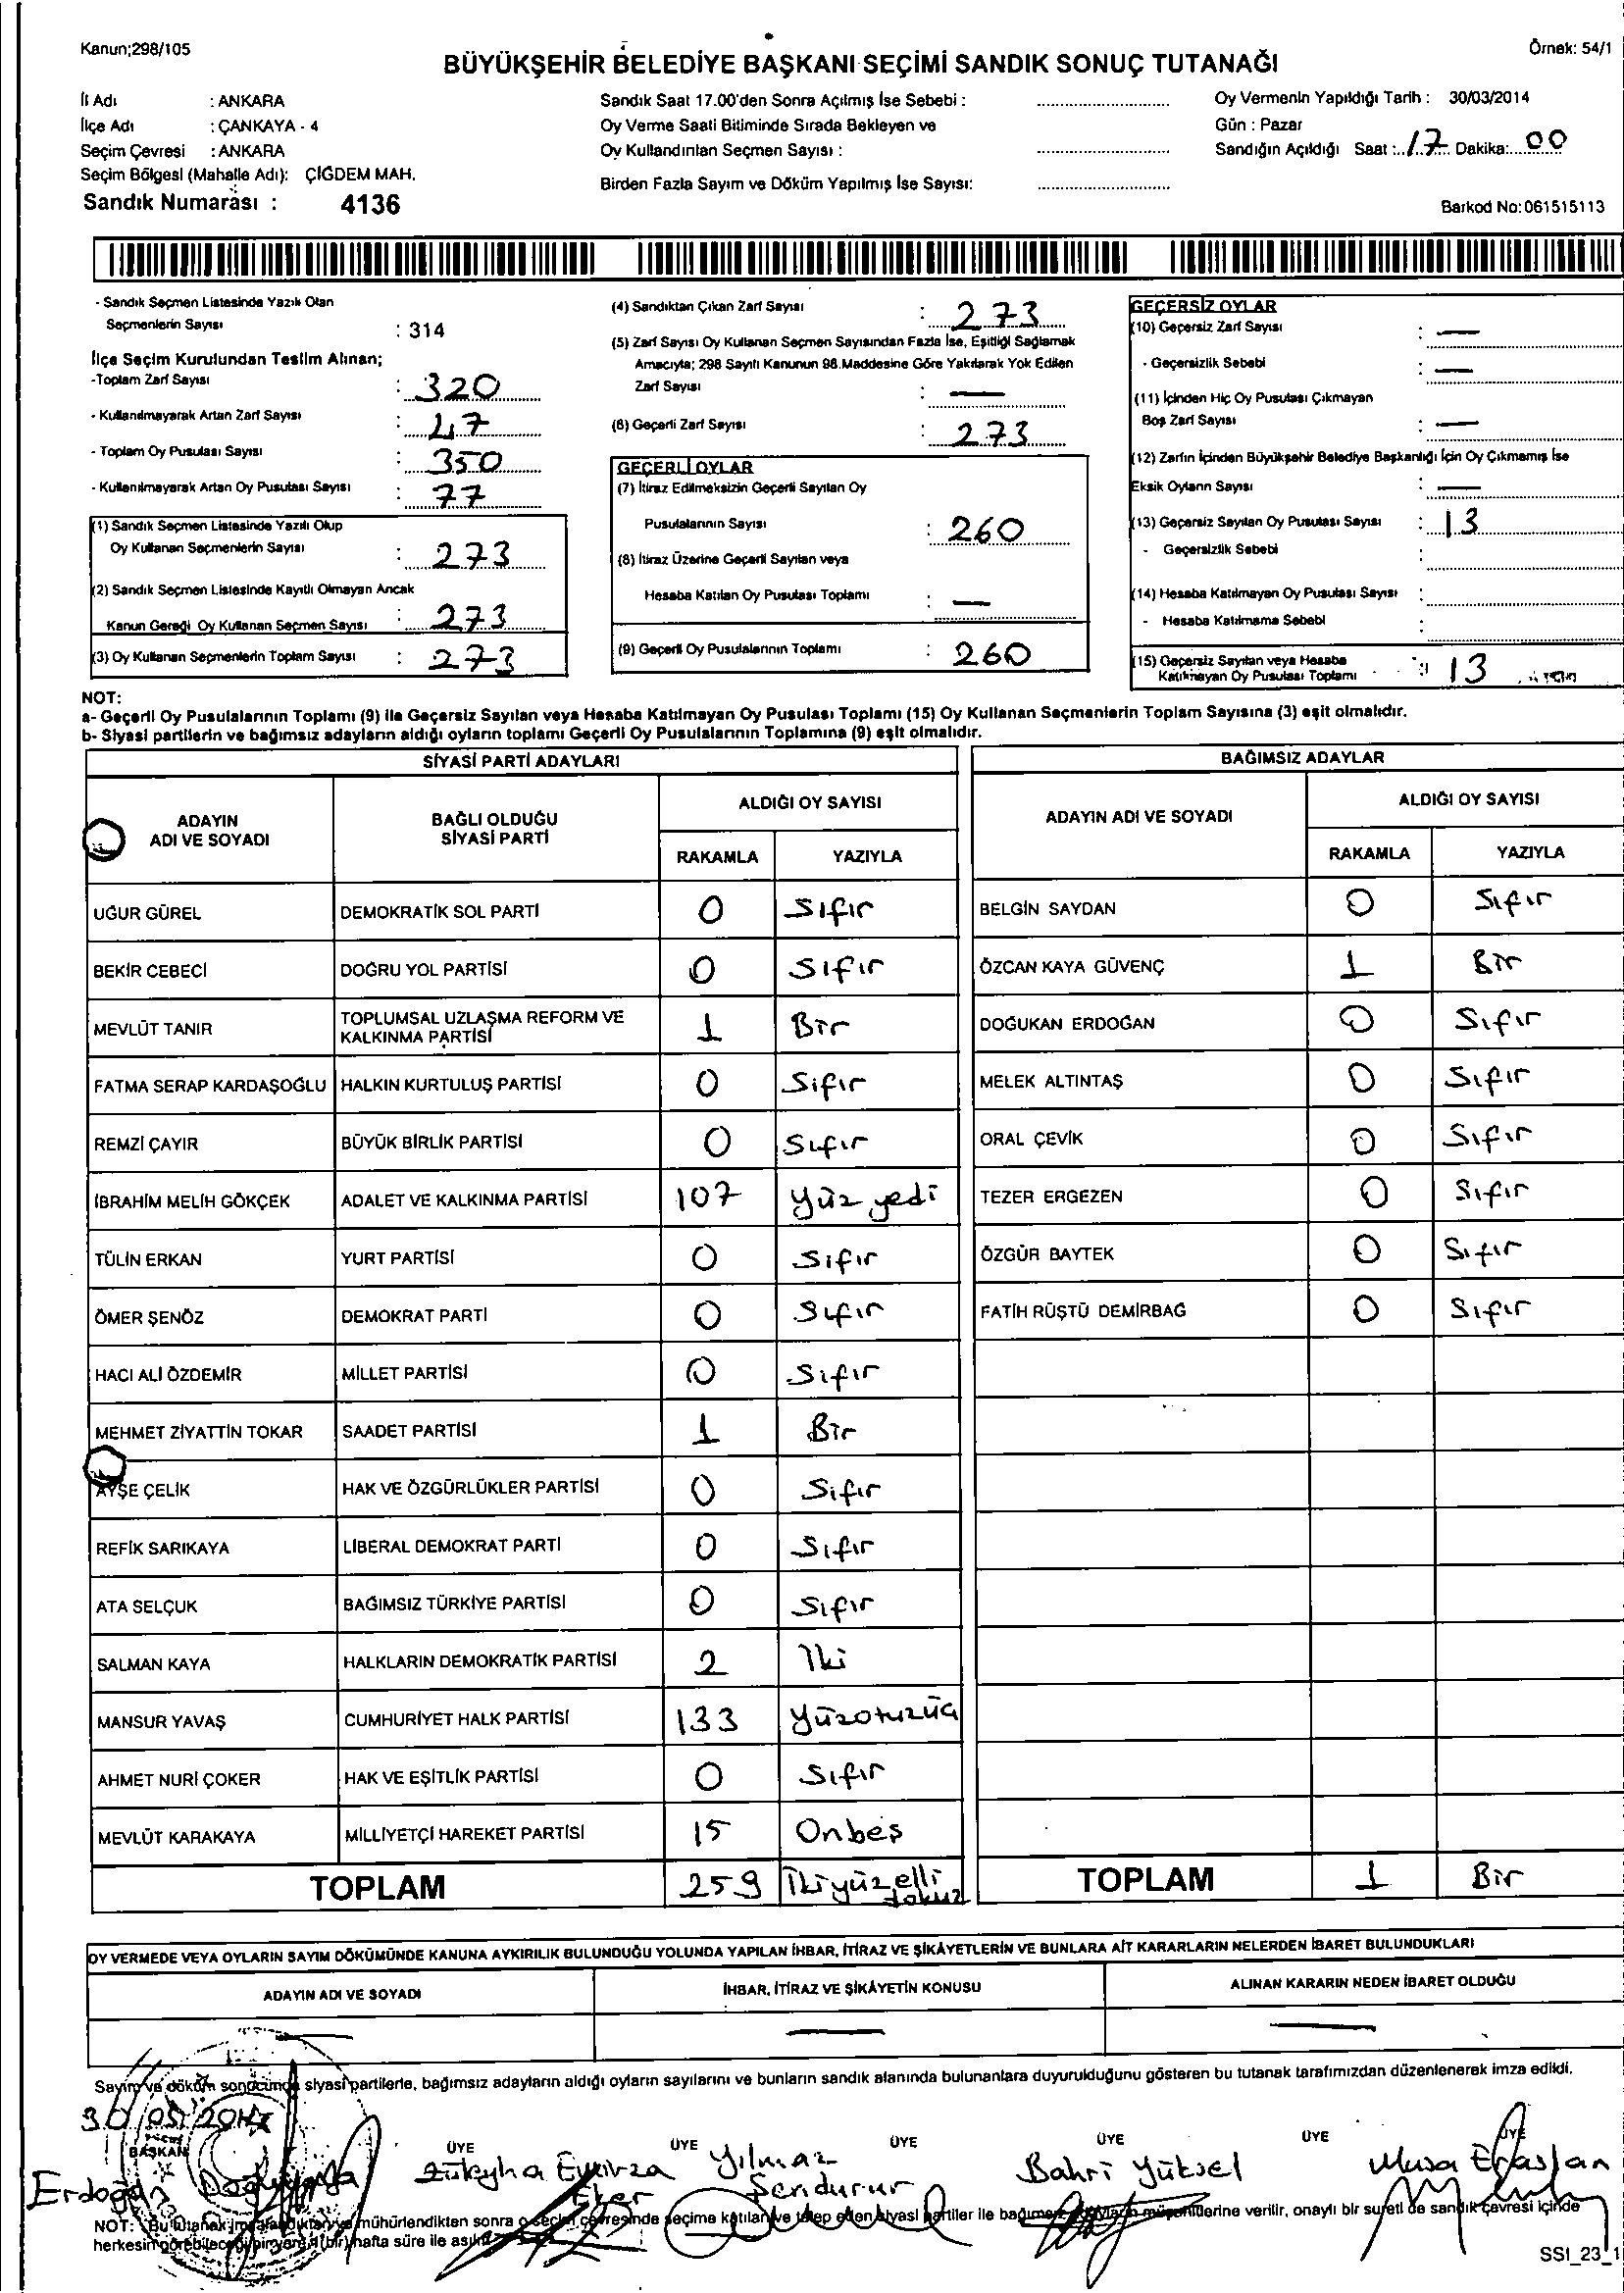 Kanun;298/105
Örnek: 54/1
BÜYÜKŞEHİR BELEDİYE BAŞKANI SEÇİMİ SANDIK SONUÇ TUTANAĞI
İl Adı : ANKARA
İlçe Adı : ÇANKAYA - 4
Seçim Çevresi : ANKARA
Seçim Bölgesi (Mahalle Adı): ÇİĞDEM MAH.
Sandık Numarası : 4136
Sandık Saat 17.00'den Sonra Açılmış İse Sebebi :
Oy Verme Saati Bitiminde Sırada Bekleyen ve
Oy Kullandırılan Seçmen Sayısı :
Birden Fazla Sayım ve Döküm Yapılmış İse Sayısı:
Oy Vermenin Yapıldığı Tarih : 30/03/2014
Gün : Pazar
Sandığın Açıldığı Saat : 17 Dakika: 00
Barkod No:061515113
- Sandık Seçmen Listesinde Yazılı Olan
Seçmenlerin Sayısı : 314
İlçe Seçim Kurulundan Teslim Alınan;
-Toplam Zarf Sayısı : 320
- Kullanılmayarak Artan Zarf Sayısı : 47
- Toplam Oy Pusulası Sayısı : 350
- Kullanılmayarak Artan Oy Pusulası Sayısı : 77
(1) Sandık Seçmen Listesinde Yazılı Olup
Oy Kullanan Seçmenlerin Sayısı : 273
(2) Sandık Seçmen Listesinde Kayıtlı Olmayan Ancak
Kanun Gereği Oy Kullanan Seçmen Sayısı : 273
(3) Oy Kullanan Seçmenlerin Toplam Sayısı : 273
(4) Sandıktan Çıkan Zarf Sayısı : 273
(5) Zarf Sayısı Oy Kullanan Seçmen Sayısından Fazla İse, Eşitliği Sağlamak
Amacıyla; 298 Sayılı Kanunun 98.Maddesine Göre Yakılarak Yok Edilen
Zarf Sayısı : —
(6) Geçerli Zarf Sayısı : 273
GEÇERLİ OYLAR
(7) İtiraz Edilmeksizin Geçerli Sayılan Oy
Pusulalarının Sayısı : 260
(8) İtiraz Üzerine Geçerli Sayılan veya
Hesaba Katılan Oy Pusulası Toplamı : —
(9) Geçerli Oy Pusulalarının Toplamı : 260
GEÇERSİZ OYLAR
(10) Geçersiz Zarf Sayısı : —
- Geçersizlik Sebebi : —
(11) İçinden Hiç Oy Pusulası Çıkmayan
Boş Zarf Sayısı : —
(12) Zarfın İçinden Büyükşehir Belediye Başkanlığı İçin Oy Çıkmamış İse
Eksik Oyların Sayısı : —
(13) Geçersiz Sayılan Oy Pusulası Sayısı : 13
- Geçersizlik Sebebi :
(14) Hesaba Katılmayan Oy Pusulası Sayısı :
- Hesaba Katılmama Sebebi :
(15) Geçersiz Sayılan veya Hesaba
Katılmayan Oy Pusulası Toplamı : 13
NOT:
a- Geçerli Oy Pusulalarının Toplamı (9) ile Geçersiz Sayılan veya Hesaba Katılmayan Oy Pusulası Toplamı (15) Oy Kullanan Seçmenlerin Toplam Sayısına (3) eşit olmalıdır.
b- Siyasi partilerin ve bağımsız adayların aldığı oyların toplamı Geçerli Oy Pusulalarının Toplamına (9) eşit olmalıdır.
SİYASİ PARTİ ADAYLARI
ADAYIN ADI VE SOYADI
BAĞLI OLDUĞU SİYASİ PARTİ
ALDIĞI OY SAYISI
RAKAMLA YAZIYLA
UĞUR GÜREL DEMOKRATİK SOL PARTİ 0 Sıfır
BEKİR CEBECİ DOĞRU YOL PARTİSİ 0 Sıfır
MEVLÜT TANIR TOPLUMSAL UZLAŞMA REFORM VE KALKINMA PARTİSİ 1 Bir
FATMA SERAP KARDAŞOĞLU HALKIN KURTULUŞ PARTİSİ 0 Sıfır
REMZİ ÇAYIR BÜYÜK BİRLİK PARTİSİ 0 Sıfır
İBRAHİM MELİH GÖKÇEK ADALET VE KALKINMA PARTİSİ 107 Yüz yedi
TÜLİN ERKAN YURT PARTİSİ 0 Sıfır
ÖMER ŞENÖZ DEMOKRAT PARTİ 0 Sıfır
HACI ALİ ÖZDEMİR MİLLET PARTİSİ 0 Sıfır
MEHMET ZİYATTİN TOKAR SAADET PARTİSİ 1 Bir
AYŞE ÇELİK HAK VE ÖZGÜRLÜKLER PARTİSİ 0 Sıfır
REFİK SARIKAYA LİBERAL DEMOKRAT PARTİ 0 Sıfır
ATA SELÇUK BAĞIMSIZ TÜRKİYE PARTİSİ 0 Sıfır
SALMAN KAYA HALKLARIN DEMOKRATİK PARTİSİ 2 İki
MANSUR YAVAŞ CUMHURİYET HALK PARTİSİ 133 Yüzotuzüç
AHMET NURİ ÇOKER HAK VE EŞİTLİK PARTİSİ 0 Sıfır
MEVLÜT KARAKAYA MİLLİYETÇİ HAREKET PARTİSİ 15 Onbeş
TOPLAM 259 İkiyüzelli dokuz
BAĞIMSIZ ADAYLAR
ADAYIN ADI VE SOYADI
ALDIĞI OY SAYISI
RAKAMLA YAZIYLA
BELGİN SAYDAN 0 Sıfır
ÖZCAN KAYA GÜVENÇ 1 Bir
DOĞUKAN ERDOĞAN 0 Sıfır
MELEK ALTINTAŞ 0 Sıfır
ORAL ÇEVİK 0 Sıfır
TEZER ERGEZEN 0 Sıfır
ÖZGÜR BAYTEK 0 Sıfır
FATİH RÜŞTÜ DEMİRBAĞ 0 Sıfır
TOPLAM 1 Bir
OY VERMEDE VEYA OYLARIN SAYIM DÖKÜMÜNDE KANUNA AYKIRILIK BULUNDUĞU YOLUNDA YAPILAN İHBAR, İTİRAZ VE ŞİKÂYETLERİN VE BUNLARA AİT KARARLARIN NELERDEN İBARET BULUNDUKLARI
ADAYIN ADI VE SOYADI
İHBAR, İTİRAZ VE ŞİKÂYETİN KONUSU
ALINAN KARARIN NEDEN İBARET OLDUĞU
Sayım ve döküm sonucunda siyasi partilerle, bağımsız adayların aldığı oyların sayılarını ve bunların sandık alanında bulunanlara duyurulduğunu gösteren bu tutanak tarafımızdan düzenlenerek imza edildi.
BAŞKAN ÜYE ÜYE ÜYE ÜYE ÜYE ÜYE
Erdoğan
Züleyha
Yılmaz Şendurur
Bahri Yüksel
Musa Eraslan
NOT: Bu tutanak mühürlendikten sonra o seçim çevresinde seçime katılan ve talep eden siyasi partiler ile bağımsız müşahitlerine verilir, onaylı bir sureti de sandık çevresi içinde
herkesin görebileceği bir yere 1(bir) hafta süre ile asılır.
SSI_23_1